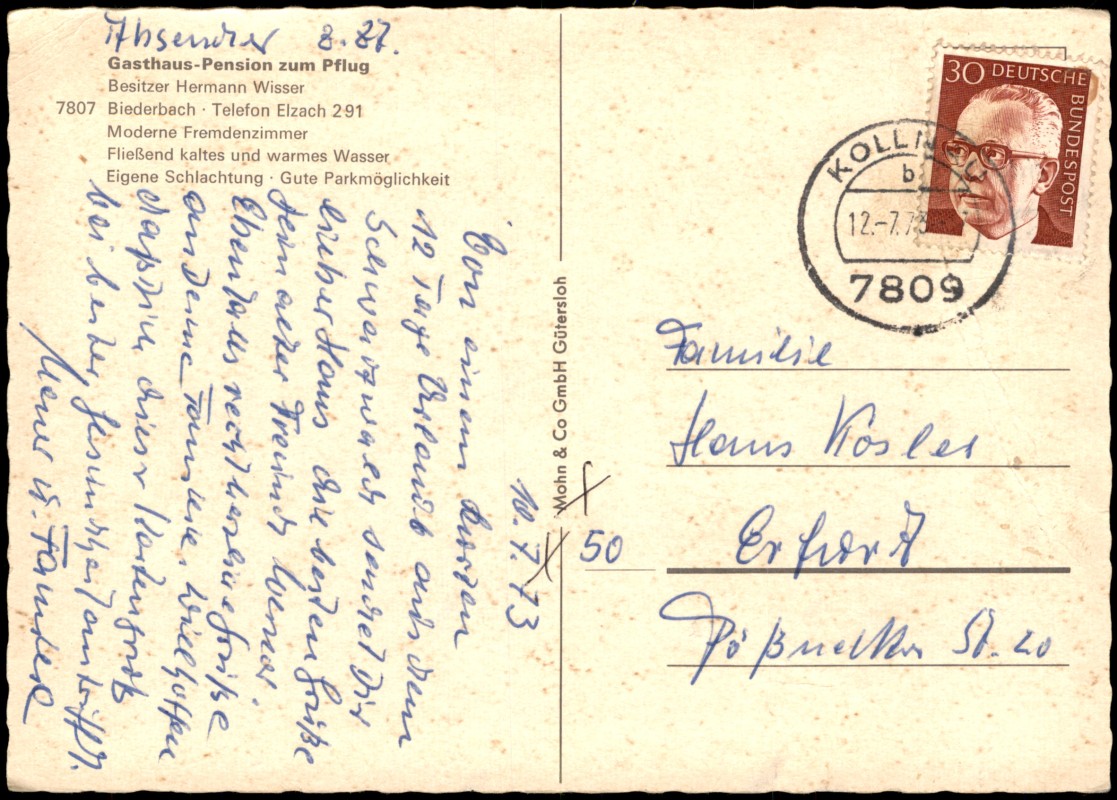 Absender z. Zt.
Gasthaus-Pension zum Pflug
Besitzer Hermann Wisser
7807 Biederbach · Telefon Elzach 291
Moderne Fremdenzimmer
Fließend kaltes und warmes Wasser
Eigene Schlachtung · Gute Parkmöglichkeit
10.7.73
Von einem kurzen
12 Tage Urlaub aus dem
Schwarzwald sendet Dir
lieber Hans die besten Grüße
Dein alter Freund Werner.
Ebenfalls recht herzliche Grüße
an Deine Familie. Wir hoffen
daß Dich dieser Kartengruß
bei bester Gesundheit antrifft.
Werner u. Familie
Mohn & Co GmbH Gütersloh
30 DEUTSCHE BUNDESPOST
b
12.-7.73
7809
Familie
Hans Kösler
50 Erfurt
Pößnecker St. 20